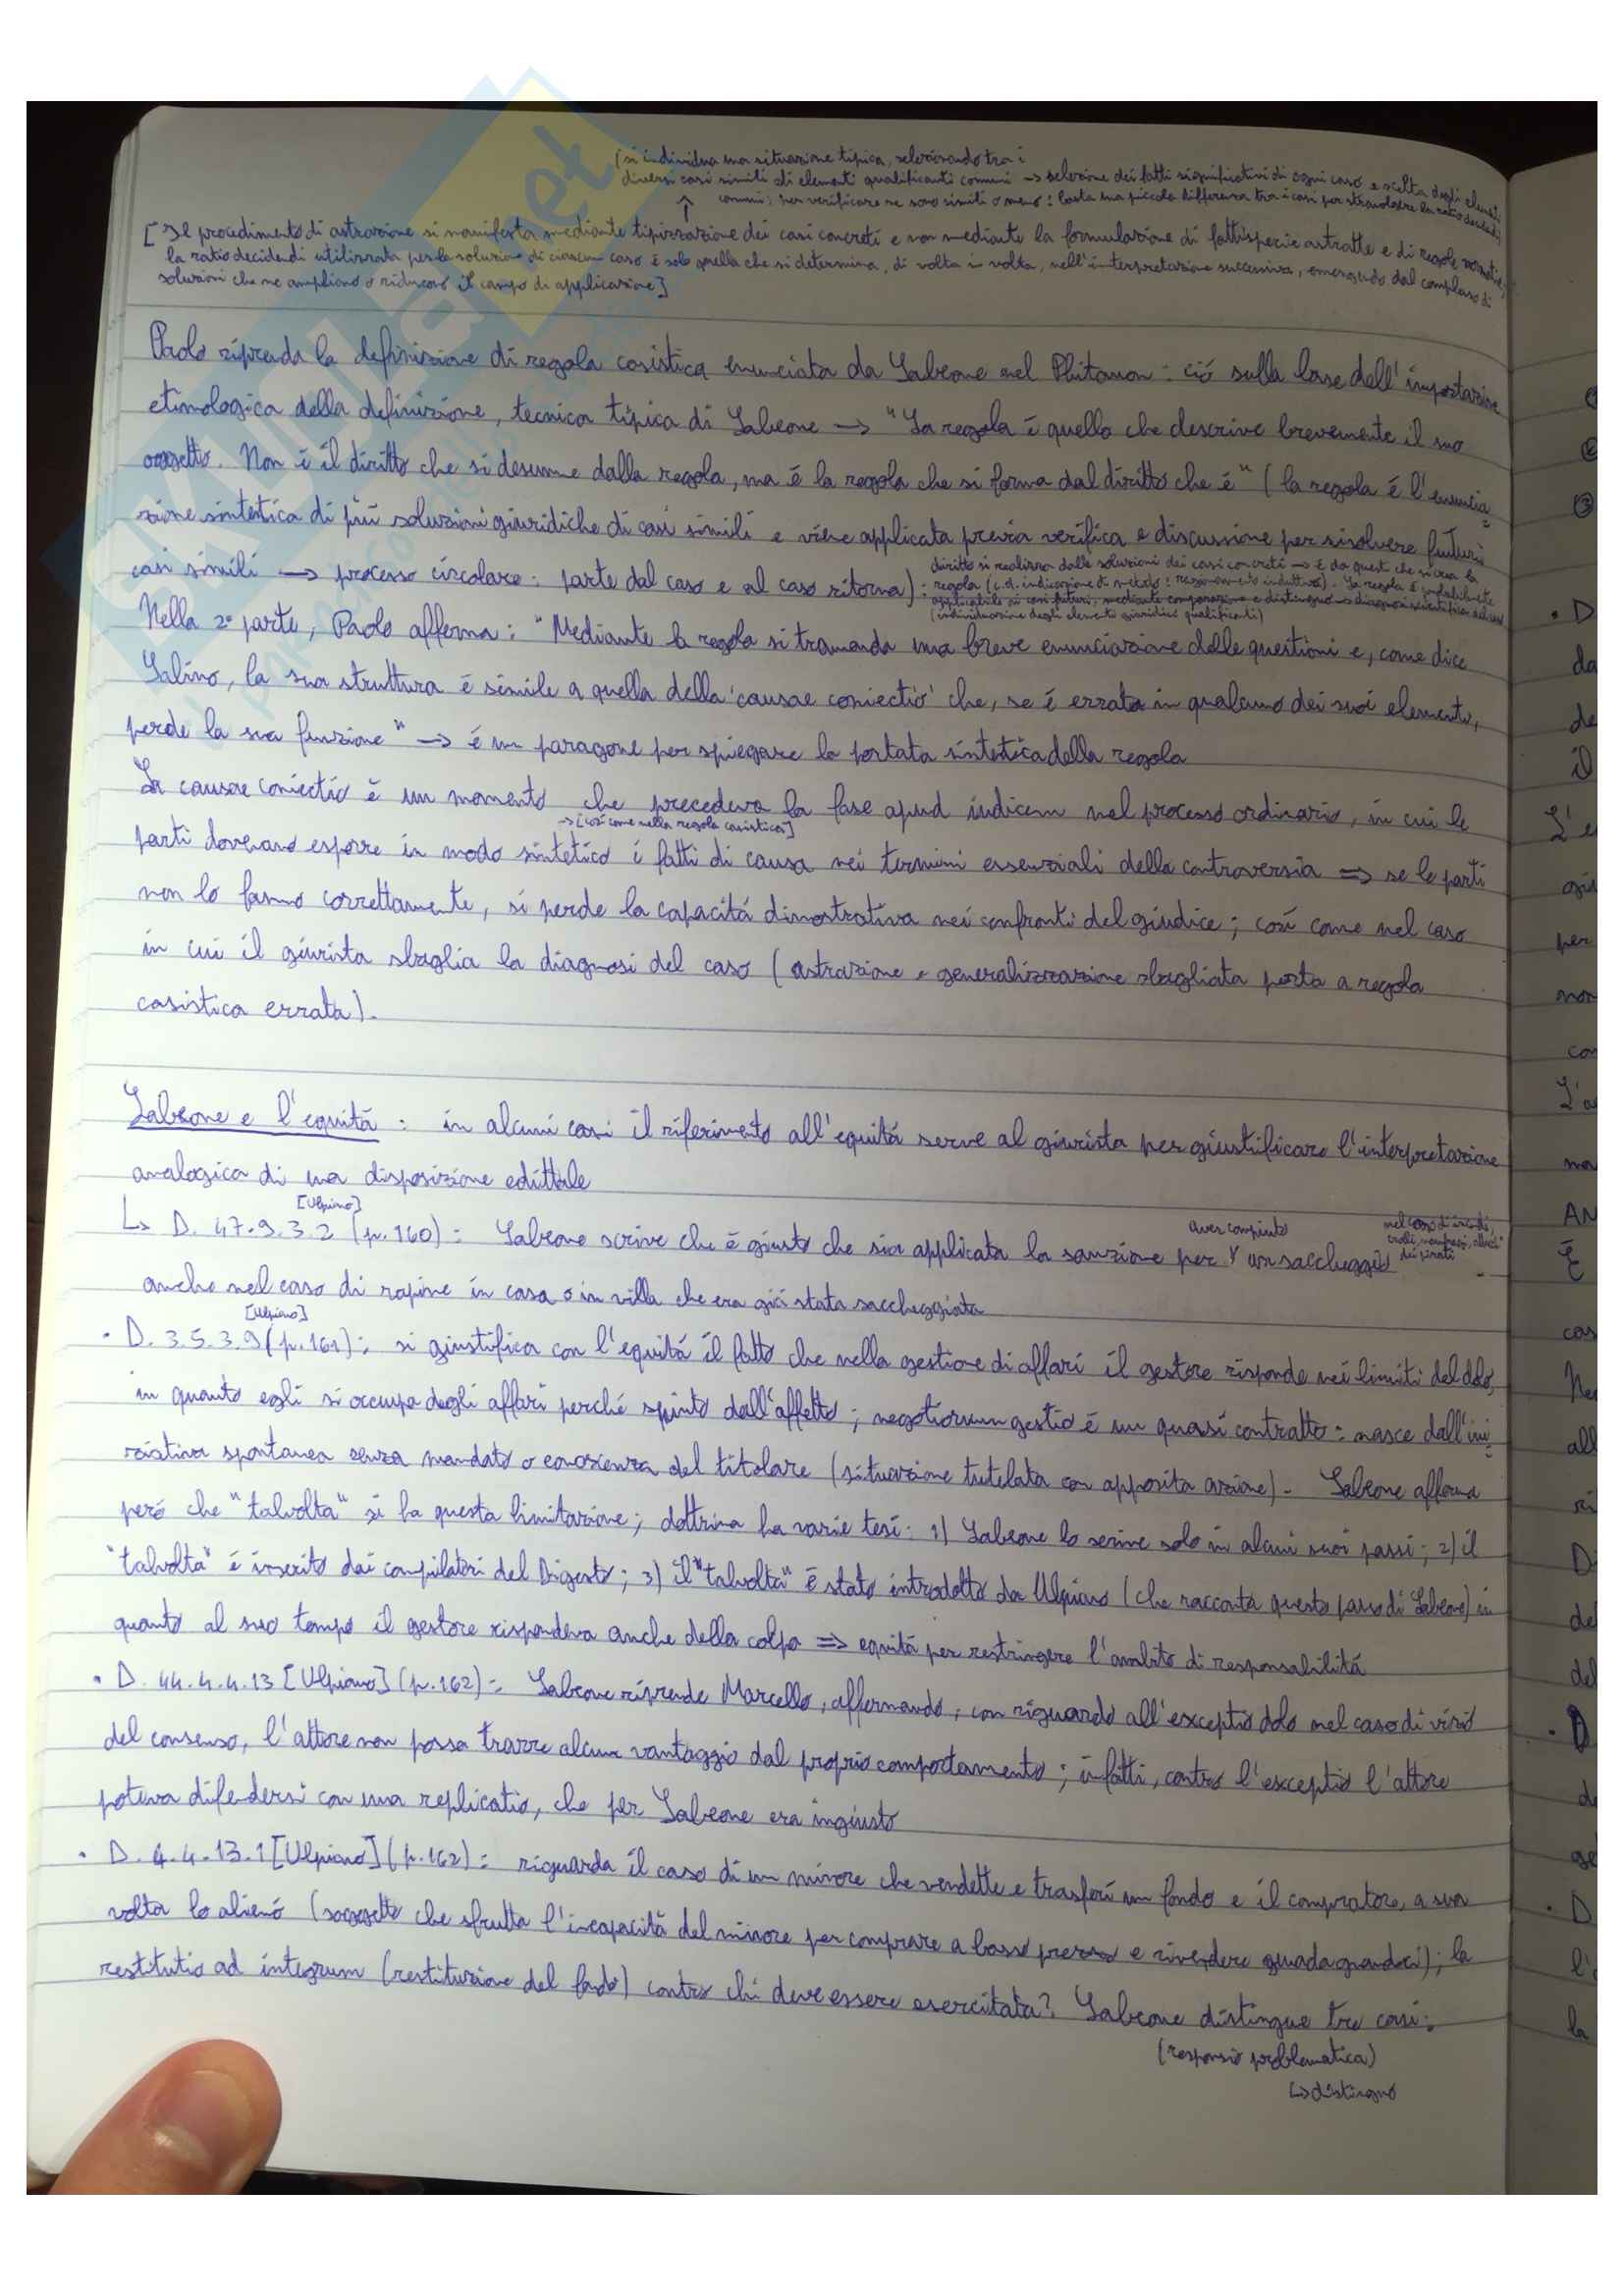 (si individua una situazione tipica, selezionando tra i
diversi casi simili gli elementi qualificanti comuni → selezione dei fatti significativi di ogni caso e scelta degli elementi
comuni; per verificare se sono simili o meno: basta una piccola differenza tra i casi per stravolgere la ratio decidendi)
↑
[Il procedimento di astrazione si manifesta mediante tipizzazione dei casi concreti e non mediante la formulazione di fattispecie astratte e di regole normative;
la ratio decidendi utilizzata per la soluzione di ciascun caso è solo quella che si determina, di volta in volta, nell'interpretazione successiva, emergendo dal complesso di
soluzioni che ne ampliano o riducono il campo di applicazione]
Paolo riprende la definizione di regola casistica enunciata da Labeone nel Phitanon: ciò sulla base dell'impostazione
etimologica della definizione, tecnica tipica di Labeone → "La regola è quella che descrive brevemente il suo
oggetto. Non è il diritto che si desume dalla regola, ma è la regola che si forma dal diritto che è" (la regola è l'enuncia=
zione sintetica di più soluzioni giuridiche di casi simili e viene applicata previa verifica e discussione per risolvere futuri
casi simili → processo circolare: parte dal caso e al caso ritorna):
diritto si realizza dalle soluzioni dei casi concreti → è da questi che si crea la
regola (c.d. indicazione di metodo: ragionamento induttivo). La regola è
applicabile ai casi futuri, mediante comparazione e distinguo → diagnosi scientifica del caso
(individuazione degli elementi giuridici qualificanti)
Nella 2ª parte, Paolo afferma: "Mediante la regola si tramanda una breve enunciazione delle questioni e, come dice
Sabino, la sua struttura è simile a quella della 'causae coniectio' che, se è errata in qualcuno dei suoi elementi,
perde la sua funzione" → è un paragone per spiegare la portata sintetica della regola
La causae coniectio è un momento che precedeva la fase apud iudicem nel processo ordinario, in cui le
→ [così come nella regola casistica]
parti dovevano esporre in modo sintetico i fatti di causa nei termini essenziali della controversia ⇒ se le parti
non lo fanno correttamente, si perde la capacità dimostrativa nei confronti del giudice; così come nel caso
in cui il giurista sbaglia la diagnosi del caso (astrazione e generalizzazione sbagliata porta a regola
casistica errata).
Labeone e l'equità: in alcuni casi il riferimento all'equità serve al giurista per giustificare l'interpretazione
analogica di una disposizione edittale
[Ulpiano]
↳ D. 47.9.3.2 (p. 160): Labeone scrive che è giusto che sia applicata la sanzione per aver compiuto un saccheggio
nel caso di incendi,
crolli, naufragi, attacchi
dei pirati
anche nel caso di rapine in casa o in villa che era già stata saccheggiata
[Ulpiano]
• D. 3.5.3.9 (p. 161): si giustifica con l'equità il fatto che nella gestione di affari il gestore risponde nei limiti del dolo,
in quanto egli si occupa degli affari perché spinto dall'affetto; negotiorum gestio è un quasi contratto: nasce dall'ini=
ziativa spontanea senza mandato o conoscenza del titolare (situazione tutelata con apposita azione). Labeone afferma
però che "talvolta" si ha questa limitazione; dottrina ha varie tesi: 1) Labeone lo scrive solo in alcuni suoi passi; 2) il
"talvolta" è inserito dai compilatori del Digesto; 3) il "talvolta" è stato introdotto da Ulpiano (che racconta questo passo di Labeone) in
quanto al suo tempo il gestore rispondeva anche della colpa ⇒ equità per restringere l'ambito di responsabilità
• D. 44.4.4.13 [Ulpiano] (p. 162): Labeone riprende Marcello, affermando, con riguardo all'exceptio dolo nel caso di vizio
del consenso, l'attore non possa trarre alcun vantaggio dal proprio comportamento; infatti, contro l'exceptio l'attore
poteva difendersi con una replicatio, che per Labeone era ingiusto
• D. 4.4.13.1 [Ulpiano] (p. 162): riguarda il caso di un minore che vendette e trasferì un fondo e il compratore, a sua
volta lo alienò (soggetto che sfrutta l'incapacità del minore per comprare a basso prezzo e rivendere guadagnandoci); la
restitutio ad integrum (restituzione del fondo) contro chi deve essere esercitata? Labeone distingue tre casi:
(responsio problematica)
↳ distinguo